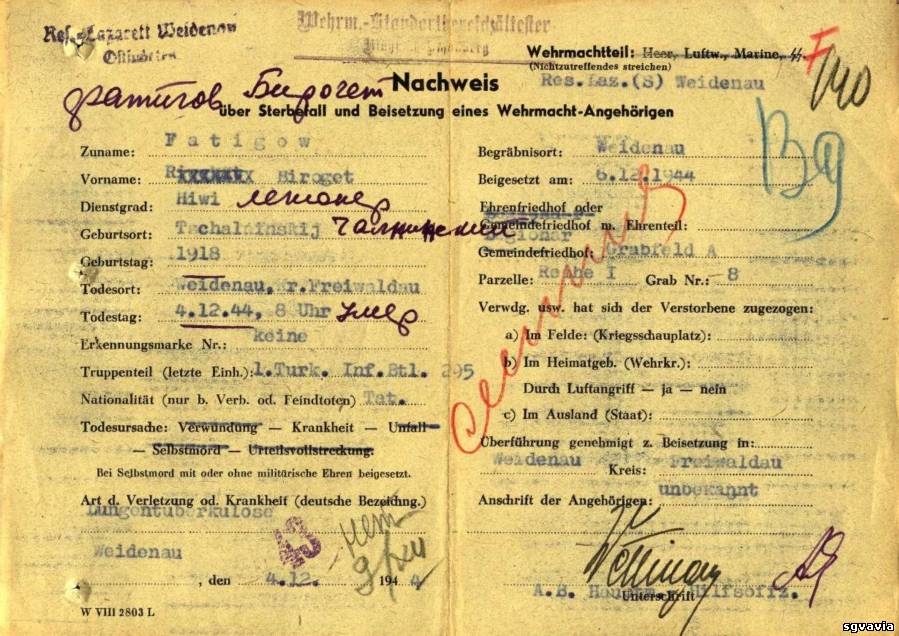 Res.-Lazarett Weidenau
Wehrm.-Standortbereichältester
Wehrmachtteil: Heer, Luftw., Marine, SS.
(Nichtzutreffendes streichen)
Res.Laz.(S) Weidenau
фатигов Бирогет
Nachweis
über Sterbefall und Beisetzung eines Wehrmacht-Angehörigen
Zuname: Fatigow
Vorname: Biroget
Dienstgrad: Hiwi
Geburtsort: Tschalninskij
Geburtstag: 1918
Todesort: Weidenau, Kr. Freiwaldau
Todestag: 4.12.44, 8 Uhr умер
Erkennungsmarke Nr.: keine
Truppenteil (letzte Einh.): 1.Turk. Inf.Btl. 295
Nationalität (nur b. Verb. od. Feindtoten) Tat.
Todesursache: Verwundung — Krankheit — Unfall
— Selbstmord — Urteilsvollstreckung.
Bei Selbstmord mit oder ohne militärische Ehren beigesetzt.
Art d. Verletzung od. Krankheit (deutsche Bezeichng.)
Lungentuberkulose
Weidenau
, den 4.12. 1944
W VIII 2803 L
Begräbnisort: Weidenau
Beigesetzt am: 6.12.1944
Ehrenfriedhof oder
Gemeindefriedhof m. Ehrenteil:
Gemeindefriedhof: Grabfeld A
Parzelle: Reihe I Grab Nr.: 8
Verwdg. usw. hat sich der Verstorbene zugezogen:
a) Im Felde: (Kriegsschauplatz):
b) Im Heimatgeb. (Wehrkr.):
Durch Luftangriff — ja — nein
c) Im Ausland (Staat):
Überführung genehmigt z. Beisetzung in:
Weidenau Kreis: Freiwaldau
Anschrift der Angehörigen: unbekannt
Unterschrift
sgvavia